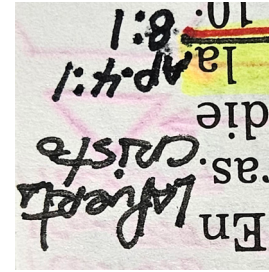 En
La Puerta
ras.
cristo
die
la
AP:4:1
10.
8:1